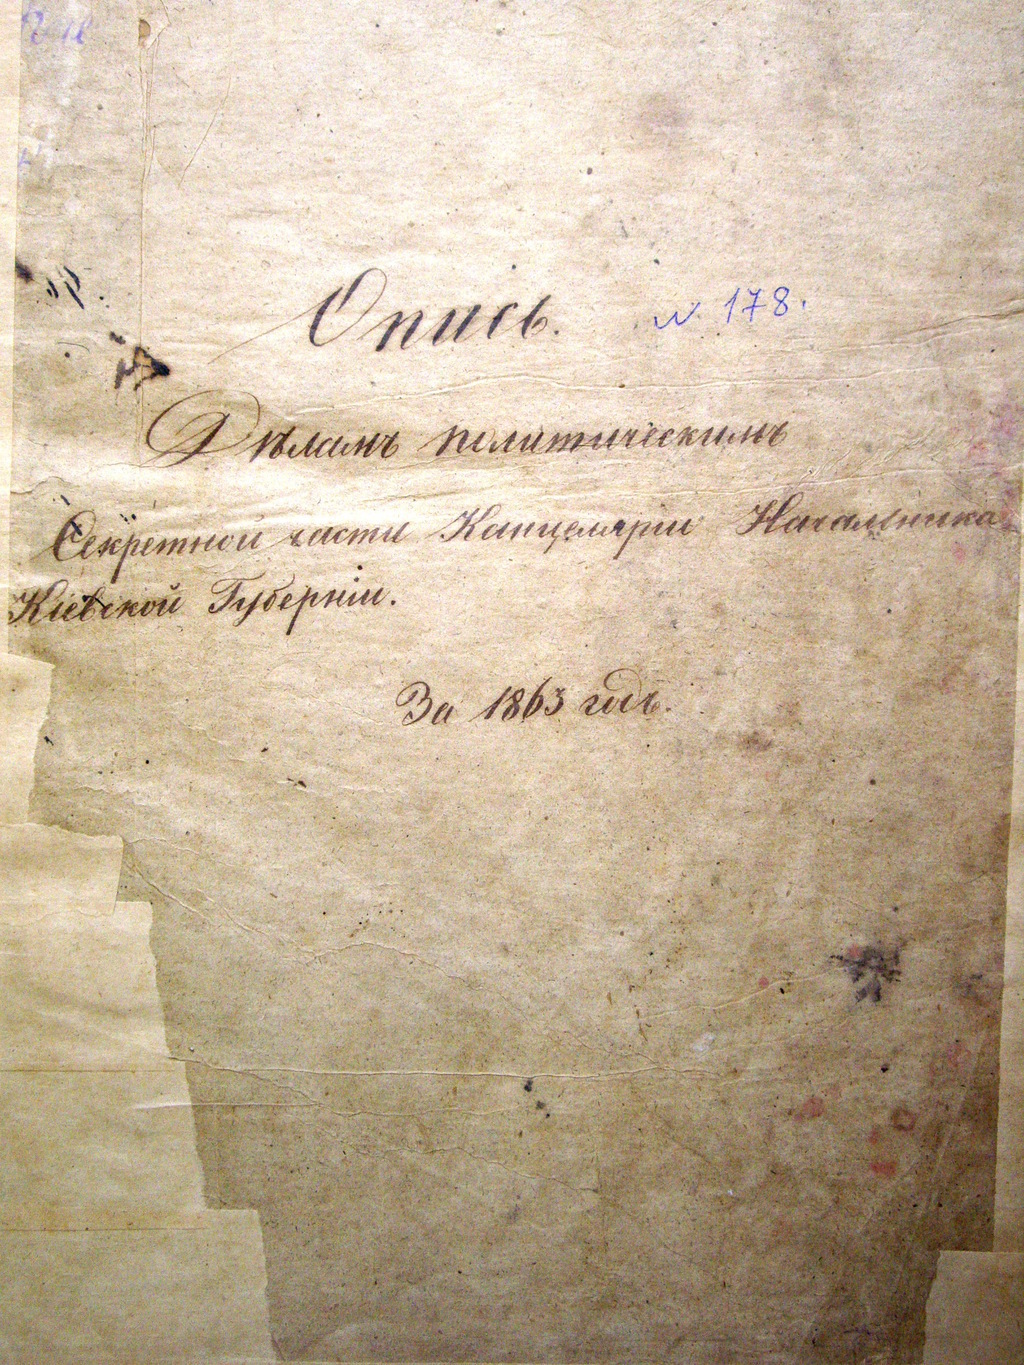 Опись. N. 178.
Дѣламъ политическимъ
Секретной части Канцеляріи Начальника
Кіевской Губерніи.
За 1863 годъ.